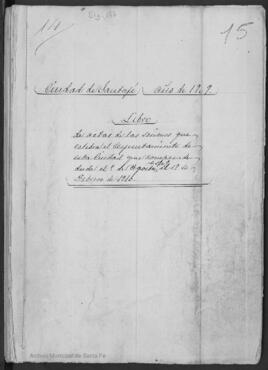 14
15
Ciudad de Santafé año de 1909
Libro
de actas de las sesiones que
celebra el Ayuntamiento de
esta Ciudad que
desde el 1º de Agosto al 1º de
Febrero de 1910
Archivo Municipal de Santa Fe